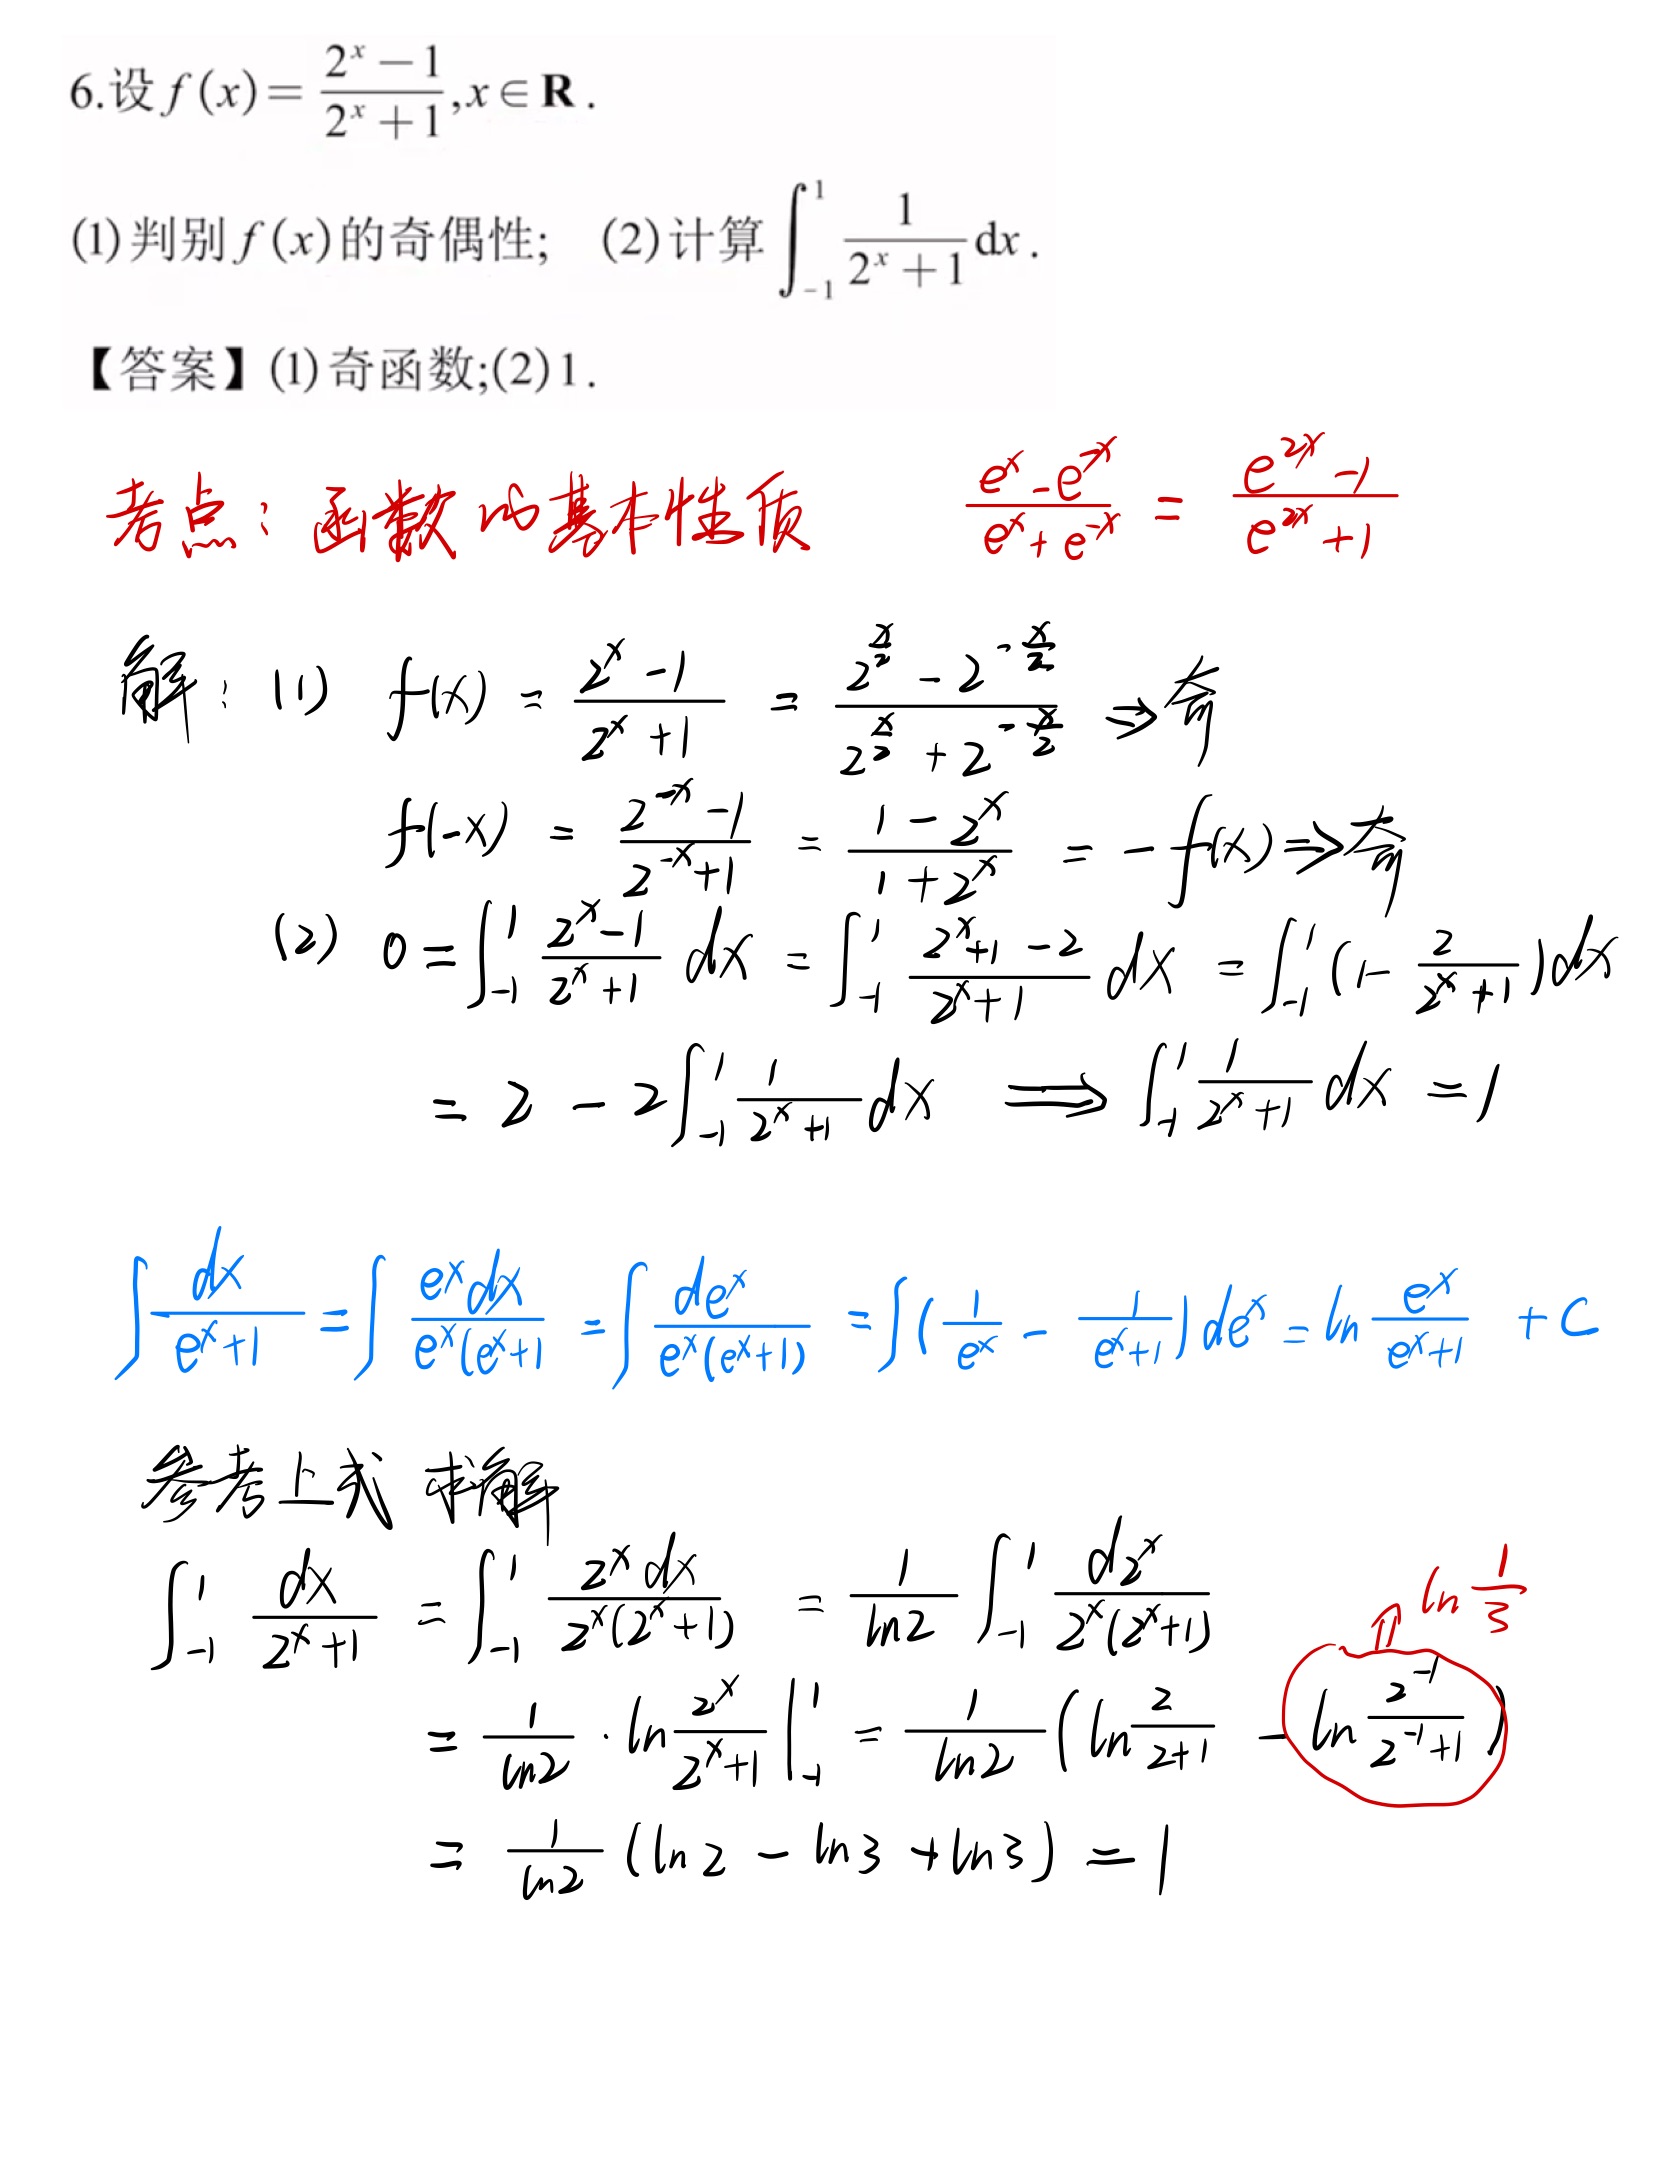 6.设 f(x) = \frac{2^x - 1}{2^x + 1}, x ∈ R.
(1)判别 f(x)的奇偶性; (2)计算 \int_{-1}^{1} \frac{1}{2^x + 1} dx.
【答案】(1)奇函数;(2)1.
考点：函数的基本性质 \frac{e^x - e^{-x}}{e^x + e^{-x}} = \frac{e^{2x} - 1}{e^{2x} + 1}
解：(1) f(x) = \frac{2^x - 1}{2^x + 1} = \frac{2^{\frac{x}{2}} - 2^{-\frac{x}{2}}}{2^{\frac{x}{2}} + 2^{-\frac{x}{2}}} ⇒ 奇
f(-x) = \frac{2^{-x} - 1}{2^{-x} + 1} = \frac{1 - 2^x}{1 + 2^x} = -f(x) ⇒ 奇
(2) 0 = \int_{-1}^{1} \frac{2^x - 1}{2^x + 1} dx = \int_{-1}^{1} \frac{2^x + 1 - 2}{2^x + 1} dx = \int_{-1}^{1} (1 - \frac{2}{2^x + 1}) dx
= 2 - 2\int_{-1}^{1} \frac{1}{2^x + 1} dx ⟹ \int_{-1}^{1} \frac{1}{2^x + 1} dx = 1
\int \frac{dx}{e^x + 1} = \int \frac{e^x dx}{e^x(e^x + 1)} = \int \frac{de^x}{e^x(e^x + 1)} = \int (\frac{1}{e^x} - \frac{1}{e^x + 1}) de^x = ln \frac{e^x}{e^x + 1} + C
参考上式 求解
\int_{-1}^{1} \frac{dx}{2^x + 1} = \int_{-1}^{1} \frac{2^x dx}{2^x(2^x + 1)} = \frac{1}{ln2} \int_{-1}^{1} \frac{d2^x}{2^x(2^x + 1)} ⇑ ln \frac{1}{3}
= \frac{1}{ln2} · ln \frac{2^x}{2^x + 1} |_{-1}^{1} = \frac{1}{ln2} (ln \frac{2}{2 + 1} - ln \frac{2^{-1}}{2^{-1} + 1})
= \frac{1}{ln2} (ln2 - ln3 + ln3) = 1